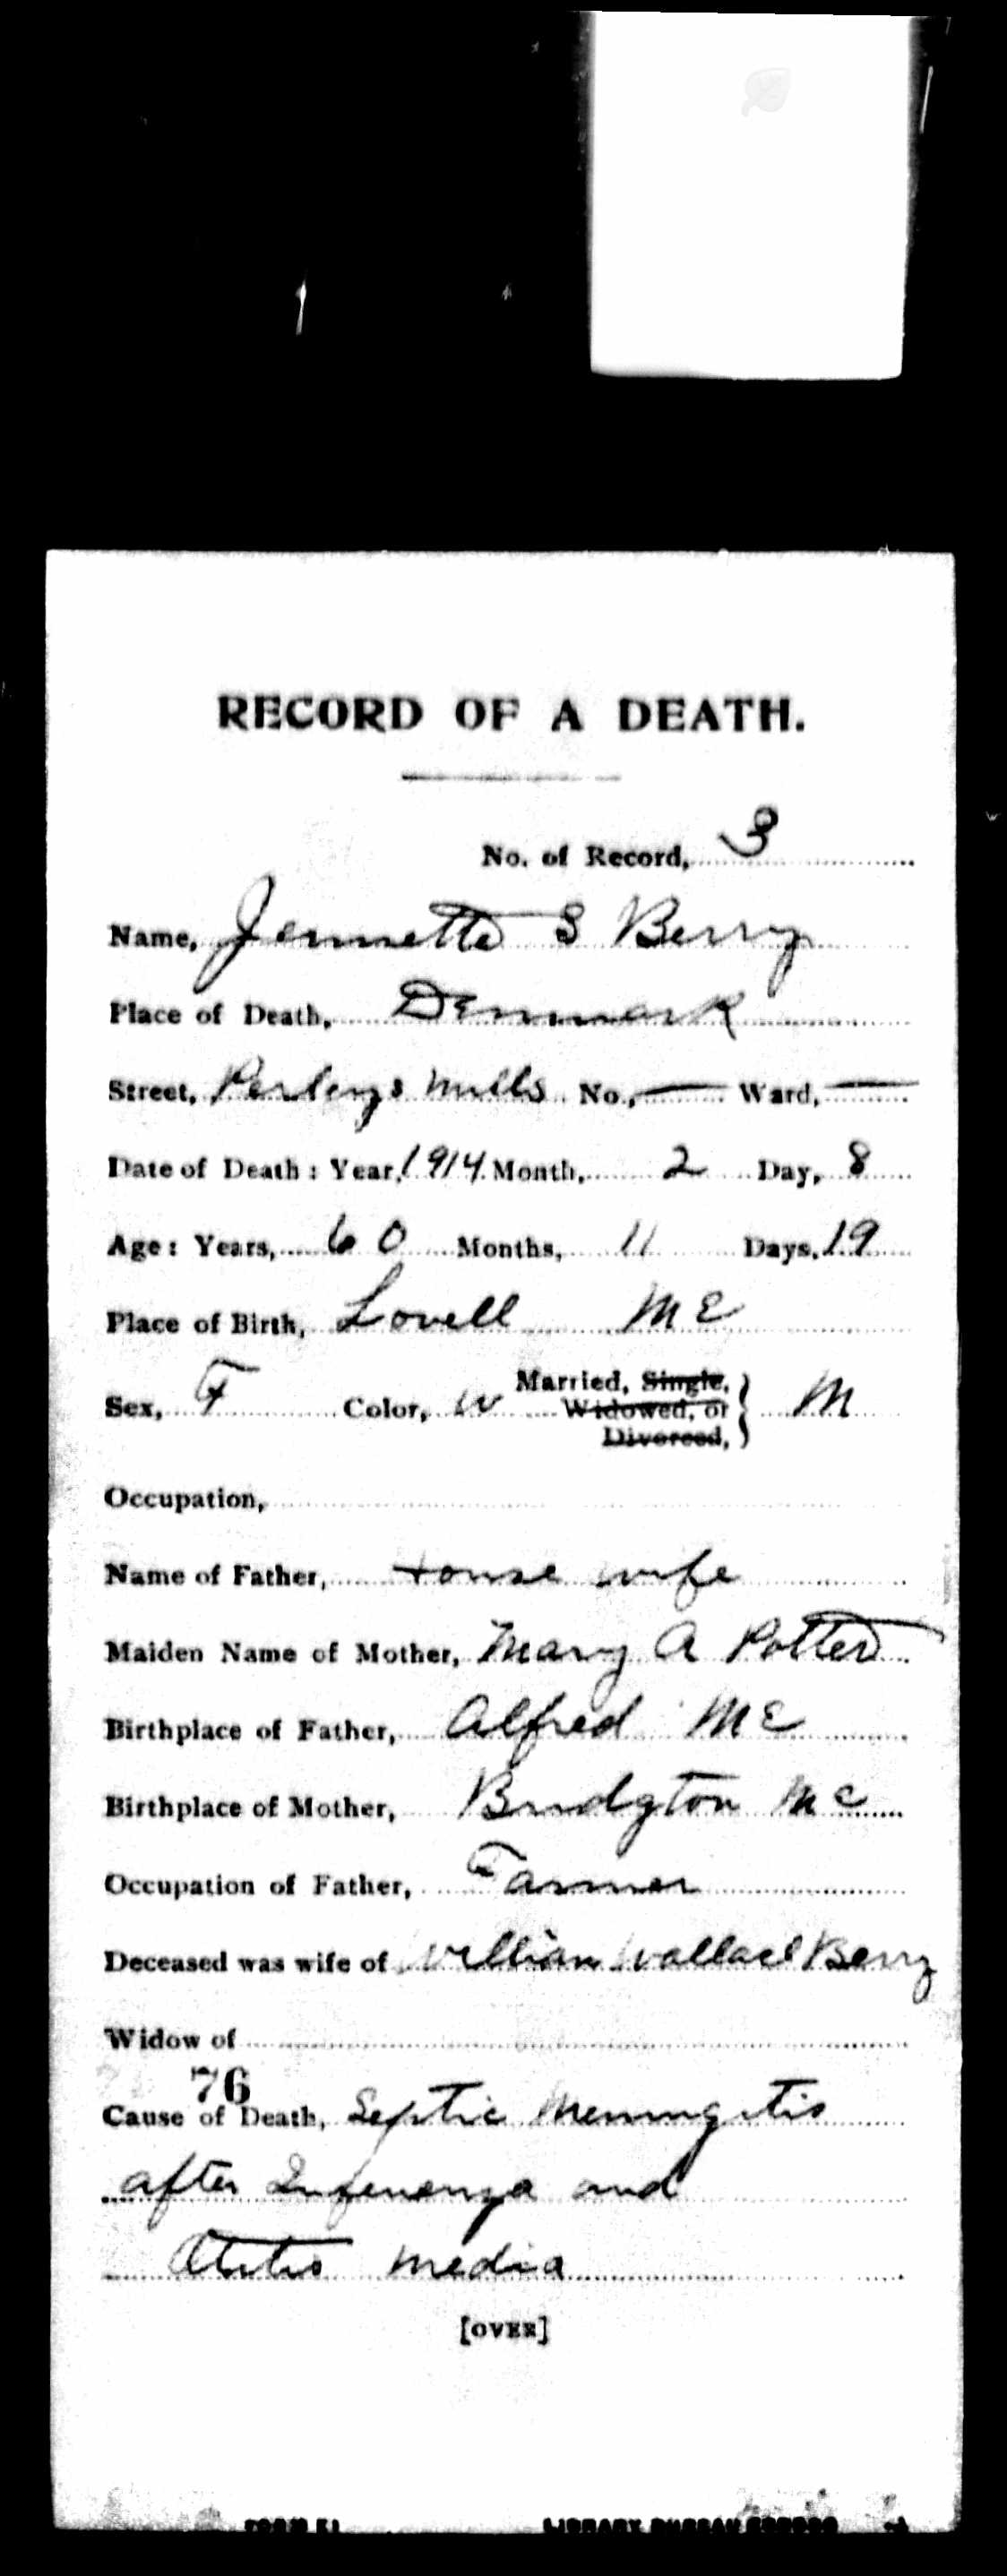 RECORD OF A DEATH.
No. of Record, 3
Name, Jennette S Berry
Place of Death, Denmark
Street, Perleys Mills No., — Ward, —
Date of Death: Year, 1914 Month, 2 Day, 8
Age: Years, 60 Months, 11 Days, 19
Place of Birth, Lovell ME
Sex, F Color, W Married, Single, Widowed, or Divorced, } M
Occupation,
Name of Father, House wife
Maiden Name of Mother, Mary A Potter
Birthplace of Father, Alfred ME
Birthplace of Mother, Bridgton Me
Occupation of Father, Farmer
Deceased was wife of William Wallace Berry
Widow of
76
Cause of Death, Septic Meningitis
after Infenenza and
Otitis media
[OVER]
LIBRARY BUREAU